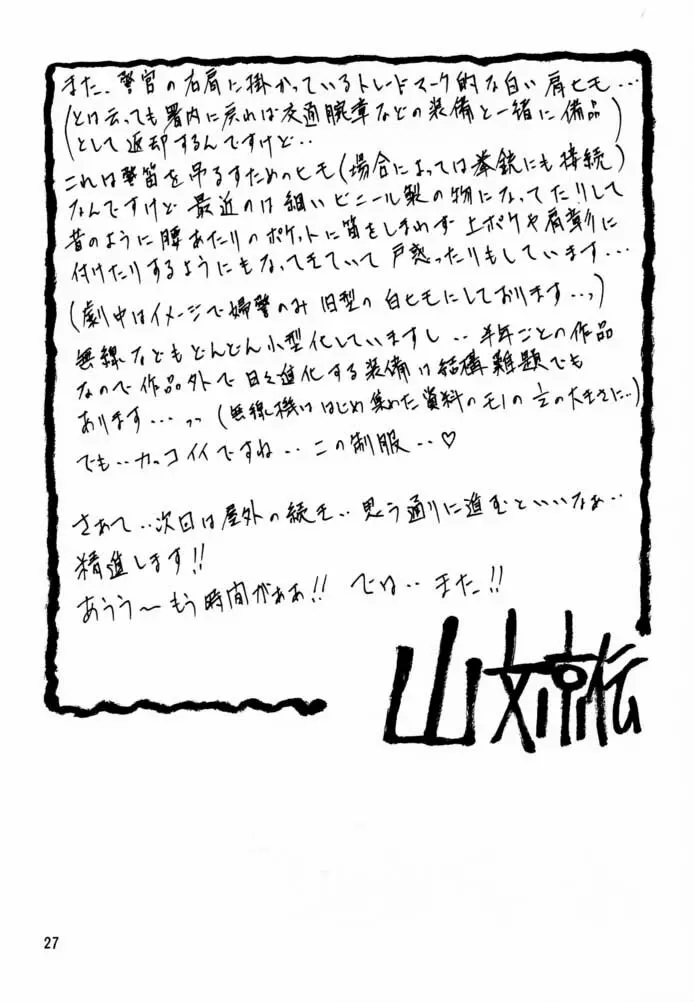 また、警官の右肩に掛かっているトレードマーク的な白い肩ヒモ…
(とは云っても署内に戻れば交通腕章などの装備と一緒に備品
として返却するんですけど‥)
これは警笛を吊るすためのヒモ(場合によっては拳銃にも接続)
なんですけど 最近のは細いビニール製の物になってたりして
昔のように腰あたりのポケットに笛をしまわず 上ポケや肩章に
付けたりするようにもなってきていて 戸惑ったりもしています…
(劇中はイメージで婦警のみ 旧型の白ヒモにしております…っ)
無線などもどんどん小型化していますし‥半年ごとの作品
なので作品外で日々進化する装備は結構難題でも
あります…っっ(無線機ははじめ集めた資料のモノの1/2の大きさに‥)
でも‥カッコイイですね‥この制服‥♡
さあて‥次回は屋外の続き‥思う通りに進むといいなぁ‥
精進します!!
あうう〜もう時間がああ!! では‥また!!
山文京伝
27